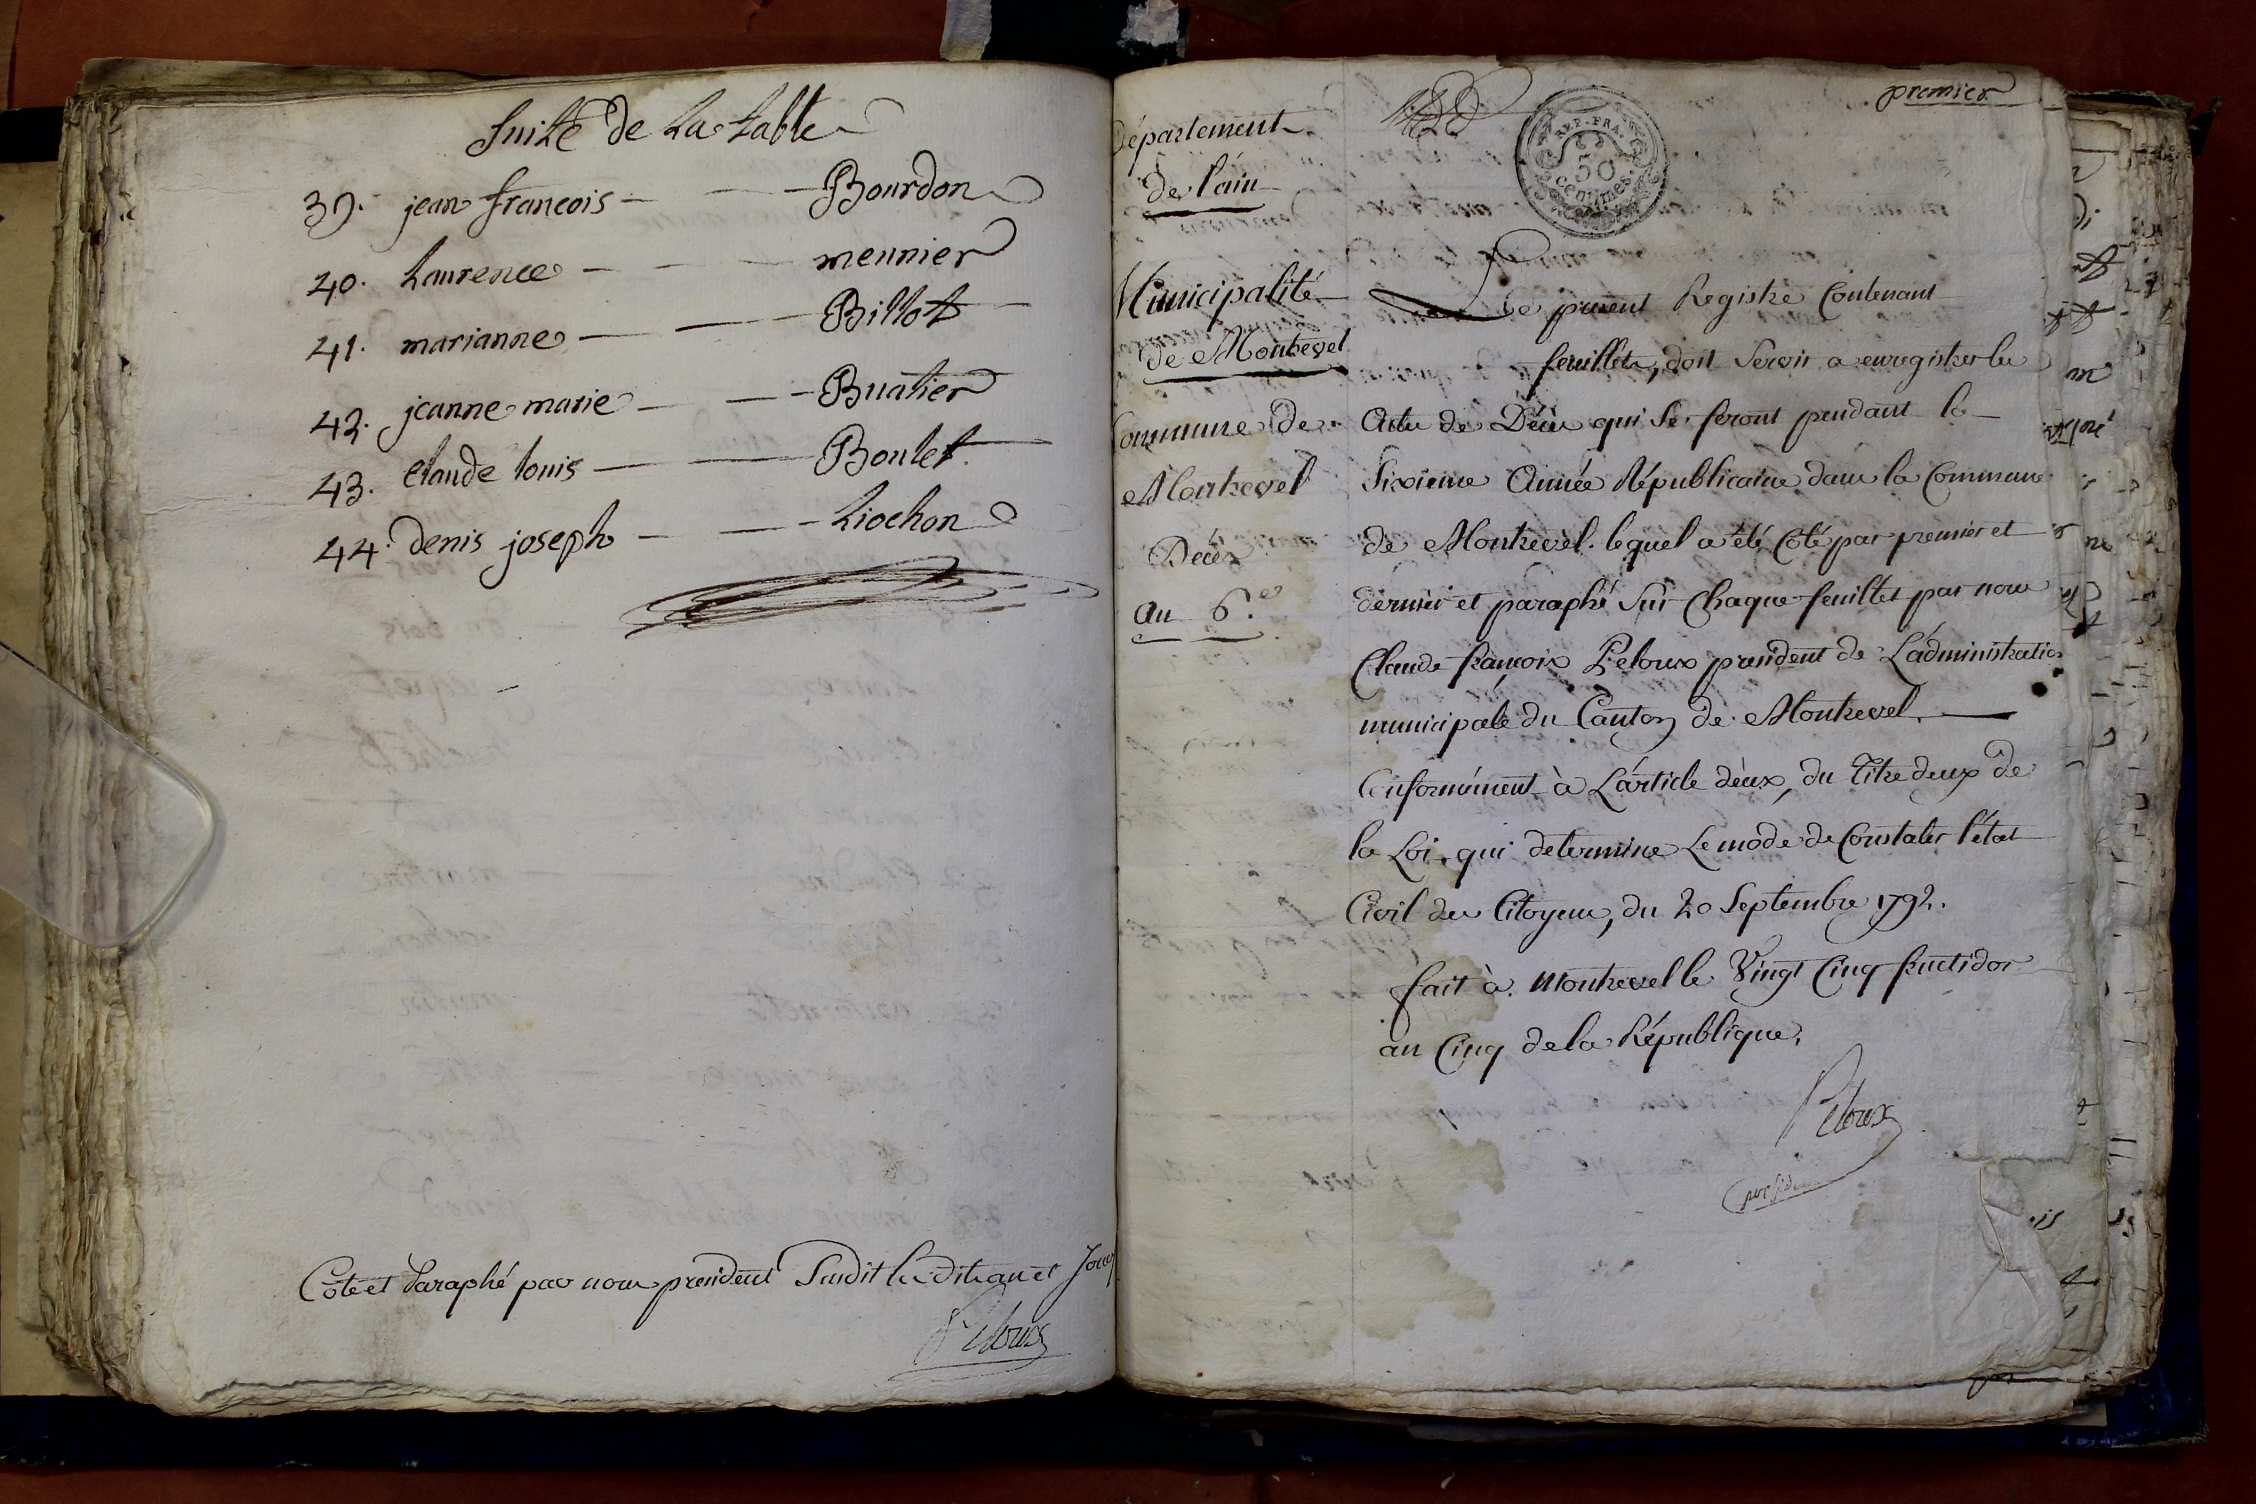 Suite de La Table
39. jean francois - - - Bourdon
40. Laurence - - - meunier
41. marianne - - - Billot
42. jeanne marie - - - Buatier
43. claude louis - - - Boulet
44. denis joseph - - - Liochon
Coté et Paraphé par nous president Susdit Les dits an et Jour
Peloux
premier
REP. FRA.
50
centimes.
Département
de l'ain
Municipalité
de Montrevel
Commune de
Montrevel
Décès
an 6.e
Le present Registre Contenant
feuillets, doit Servir a enregistrer les
Actes de Décès qui Se feront pendant la
Sixieme Année Républicaine dans la Commune
de Montrevel. lequel a été Coté par premier et
dernier et paraphé Sur Chaque feuillet par nous
Claude françois Peloux president de L'administration
municipale du Canton de Montrevel.
Conformément à L'article deux, du Titre deux de
la Loi, qui determine Le mode de Constater l'état
Civil des Citoyens, du 20 Septembre 1792.
fait à Montrevel le Vingt Cinq fructidor
an Cinq de la République.
Peloux